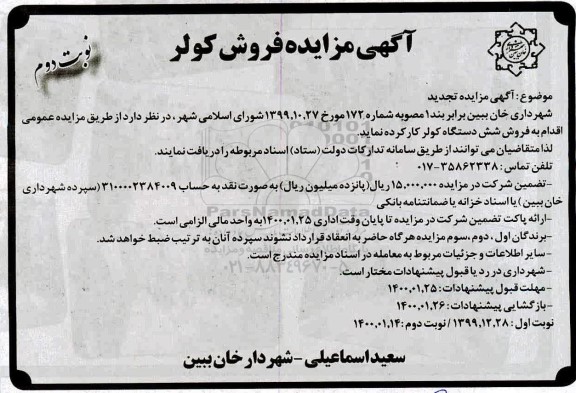 آگهی مزایده فروش کولر
نوبت دوم
موضوع : آگهی مزایده تجدید
شهرداری خان ببین برابر بند۱ مصوبه شماره ۱۷۲ مورخ ۱۳۹۹،۱۰،۲۷ شورای اسلامی شهر ، در نظر دارد از طریق مزایده عمومی
اقدام به فروش شش دستگاه کولر کار کرده نماید.
لذا متقاضیان می توانند از طریق سامانه تدارکات دولت (ستاد) اسناد مربوطه را دریافت نمایند.
تلفن تماس : ۳۵۸۶۲۳۳۸-۰۱۷
-تضمین شرکت در مزایده ۱۵,۰۰۰,۰۰۰ ریال(پانزده میلیون ریال) به صورت نقد به حساب ۳۱۰۰۰۰۲۳۸۴۰۰۹ (سپرده شهرداری
خان ببین) یا اسناد خزانه یا ضمانتنامه بانکی
-ارائه پاکت تضمین شرکت در مزایده تا پایان وقت اداری ۱۴۰۰،۰۱،۲۵ به واحد مالی الزامی است.
-برندگان اول ، دوم، سوم مزایده هر گاه حاضر به انعقاد قرارداد نشوند سپرده آنان به ترتیب ضبط خواهد شد.
-سایر اطلاعات و جزئیات مربوط به معامله در اسناد مزایده مندرج است.
-شهرداری در رد یا قبول پیشنهادات مختار است.
-مهلت قبول پیشنهادات : ۱۴۰۰،۰۱،۲۵
-بازگشایی پیشنهادات : ۱۴۰۰،۰۱،۲۶
نوبت اول : ۱۳۹۹،۱۲،۲۸ / نوبت دوم : ۱۴۰۰،۰۱،۱۴
سعید اسماعیلی - شهردار خان ببین
ParsNamadData
۰۲۱-۸۸۳۴۹۶۷۰